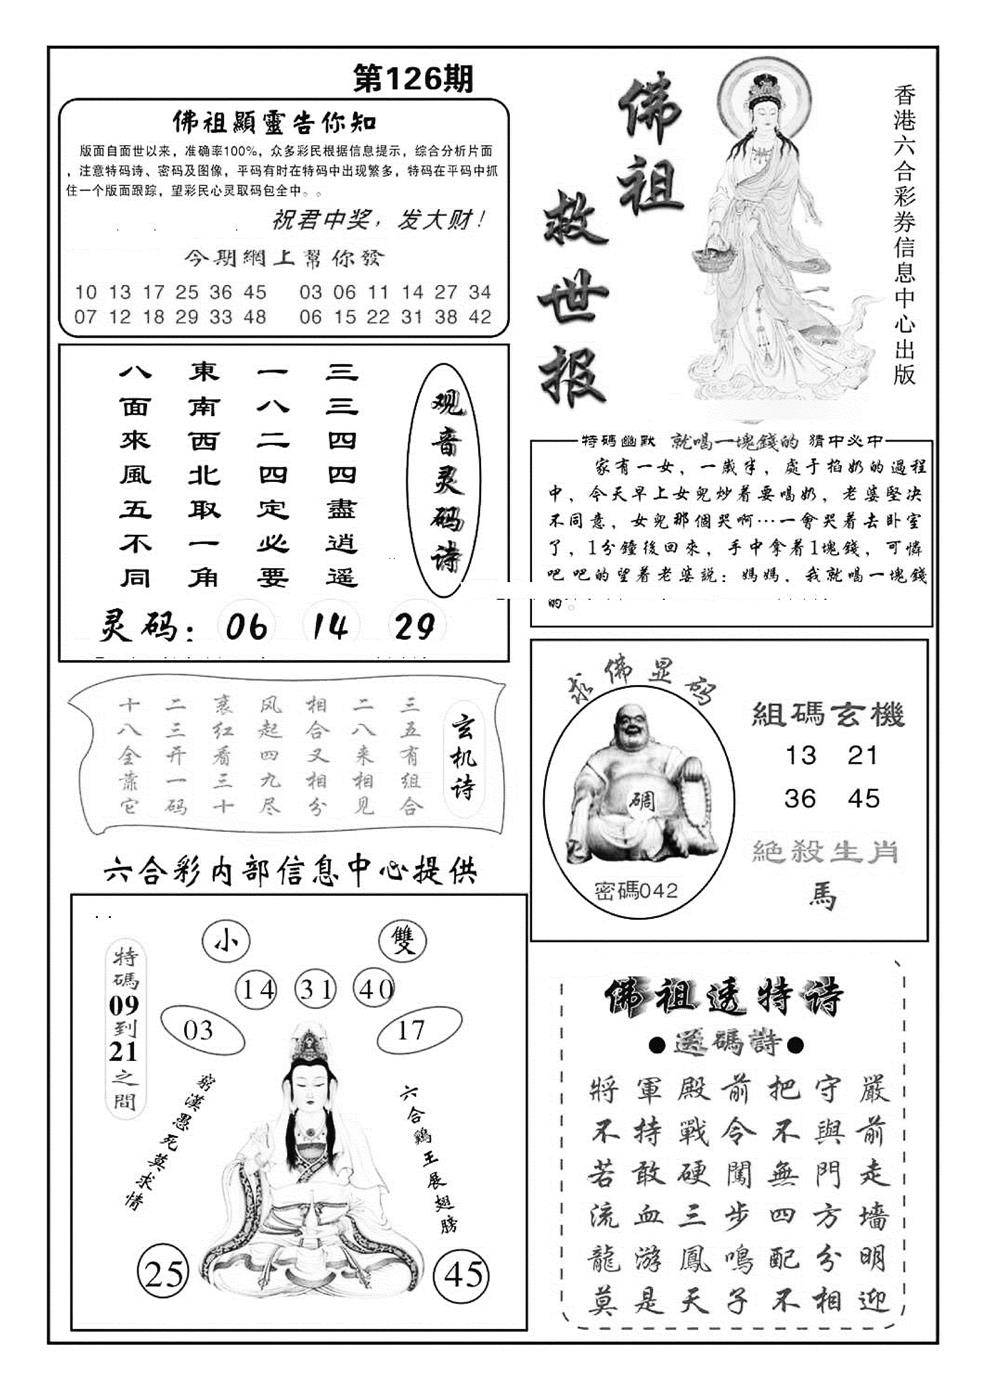 第126期
佛祖顯靈告你知
版面自面世以来，准确率100%，众多彩民根据信息提示，综合分析片面
，注意特码诗、密码及图像，平码有时在特码中出现繁多，特码在平码中抓
住一个版面跟踪，望彩民心灵取码包全中。。
祝君中奖，发大财！
今期網上幫你發
10 13 17 25 36 45 03 06 11 14 27 34
07 12 18 29 33 48 06 15 22 31 38 42
佛祖
救世报
香港六合彩券信息中心出版
观音灵码诗
三三四四盡逍遥
一八二四定必要
東南西北取一角
八面來風五不同
灵码：06 14 29
特碼幽默 就喝一塊錢的 猜中必中
家有一女，一歲半，處于掐奶的過程
中，今天早上女兒炒着要喝奶，老婆堅决
不同意，女兒那個哭啊…一會哭着去卧室
了，1分鐘後回來，手中拿着1塊錢，可憐
吧吧的望着老婆説：媽媽，我就喝一塊錢
的。
玄机诗
三五有组合
二八来相见
相合又相分
风起四九尽
裹红看三十
二三开一码
十八全靠它
求佛显码
碉
密碼042
組碼玄機
13 21
36 45
絕殺生肖
馬
六合彩内部信息中心提供
特碼09到21之間
小
雙
14 31 40
03
17
窮漢愚死莫求情
六合鷄王展翅膀
25
45
佛祖透特诗
●送碼詩●
將軍殿前把守嚴
不持戰令不與前
若敢硬闖無門走
流血三步四方墙
龍游鳳鳴配分明
莫是天子不相迎